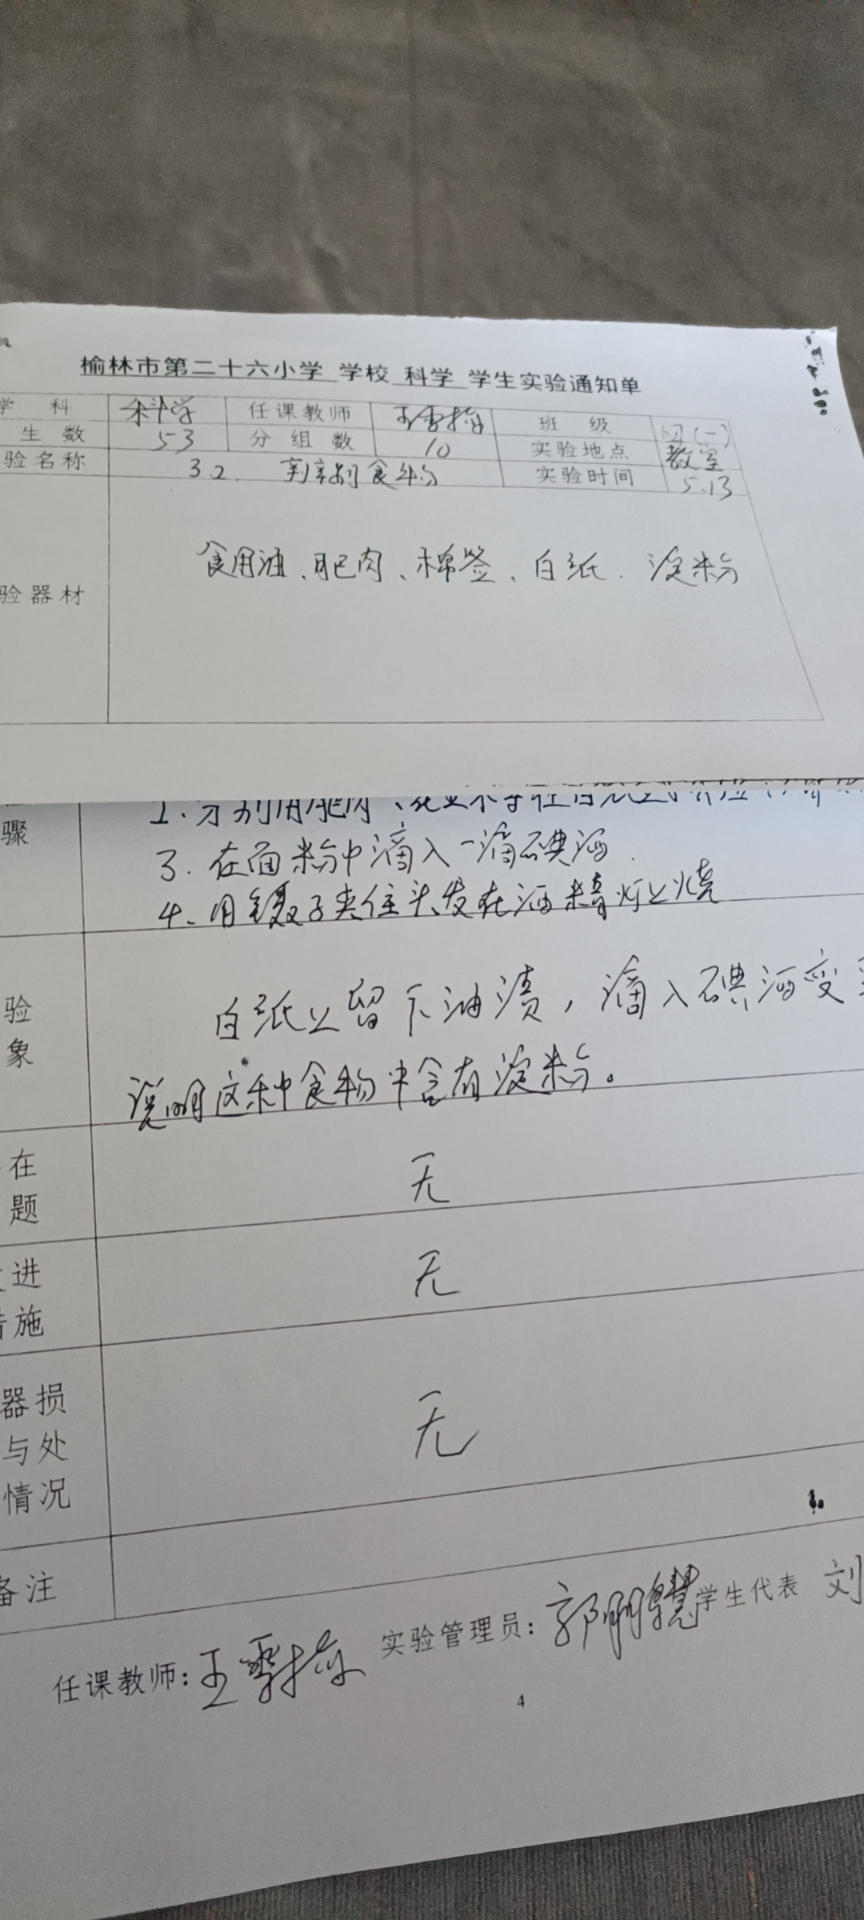 榆林市第二十六小学 学校 科学 学生实验通知单
学 科 科学 任课教师 王雪梅 班 级 四(一)
生数 53 分组数 10 实验地点 教室
验名称 3.2. 辨别食物 实验时间 5.13
验器材 食用油、肥肉、棉签、白纸、淀粉
骤
3. 在面粉中滴入一滴碘酒.
4. 用镊子夹住头发在酒精灯上烧
验 白纸上留下油渍，滴入碘酒变
象 说明这种食物中含有淀粉。
在 无
题
进 无
施
器损 无
与处
情况
备注
任课教师: 王雪梅 实验管理员: 学生代表 刘
4